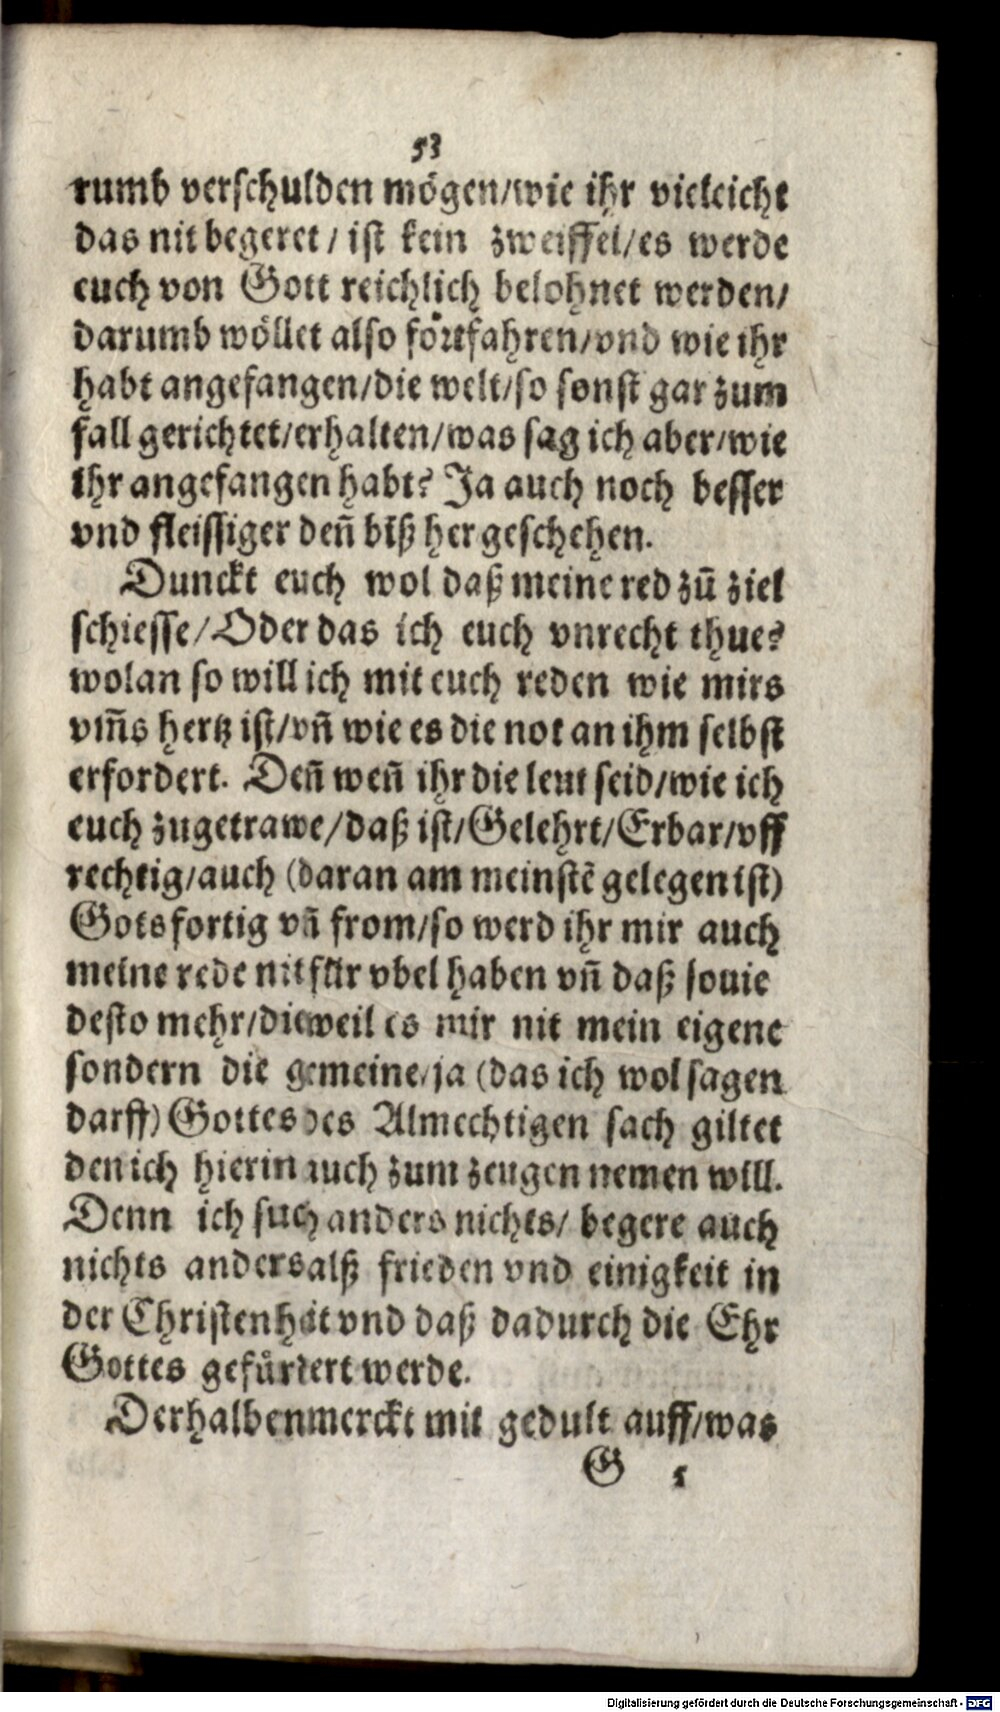 53
rumb verschulden mögen/wie ihr vieleicht
das nit begeret / ist kein zweiffel/es werde
euch von Gott reichlich belohnet werden/
darumb wöllet also förtfahren/vnd wie ihr
habt angefangen/die welt/so sonst gar zum
fall gerichtet/erhalten/was sag ich aber/wie
ihr angefangen habt? Ja auch noch besser
vnd fleissiger deñ biß her geschehen.
Dunckt euch wol daß meine red zū ziel
schiesse/Oder das ich euch vnrecht thue?
wolan so will ich mit euch reden wie mirs
vm̃s hertz ist/vñ wie es die not an ihm selbst
erfordert. Deñ weñ ihr die leut seid/wie ich
euch zugetrawe/daß ist/Gelehrt/Erbar/vff
rechtig/auch (daran am meinstē gelegen ist)
Gotsfortig vñ from/so werd ihr mir auch
meine rede nit für vbel haben vñ daß souie
desto mehr/dieweil es mir nit mein eigene
sondern die gemeine/ja (das ich wol sagen
darff) Gottes des Almechtigen sach giltet
den ich hierin auch zum zeugen nemen will.
Denn ich such anders nichts/ begere auch
nichts anders alß frieden vnd einigkeit in
der Christenheit vnd daß dadurch die Ehr
Gottes gefürdert werde.
Derhalben merckt mit gedult auff/was
G 5
Digitalisierung gefördert durch die Deutsche Forschungsgemeinschaft - DFG